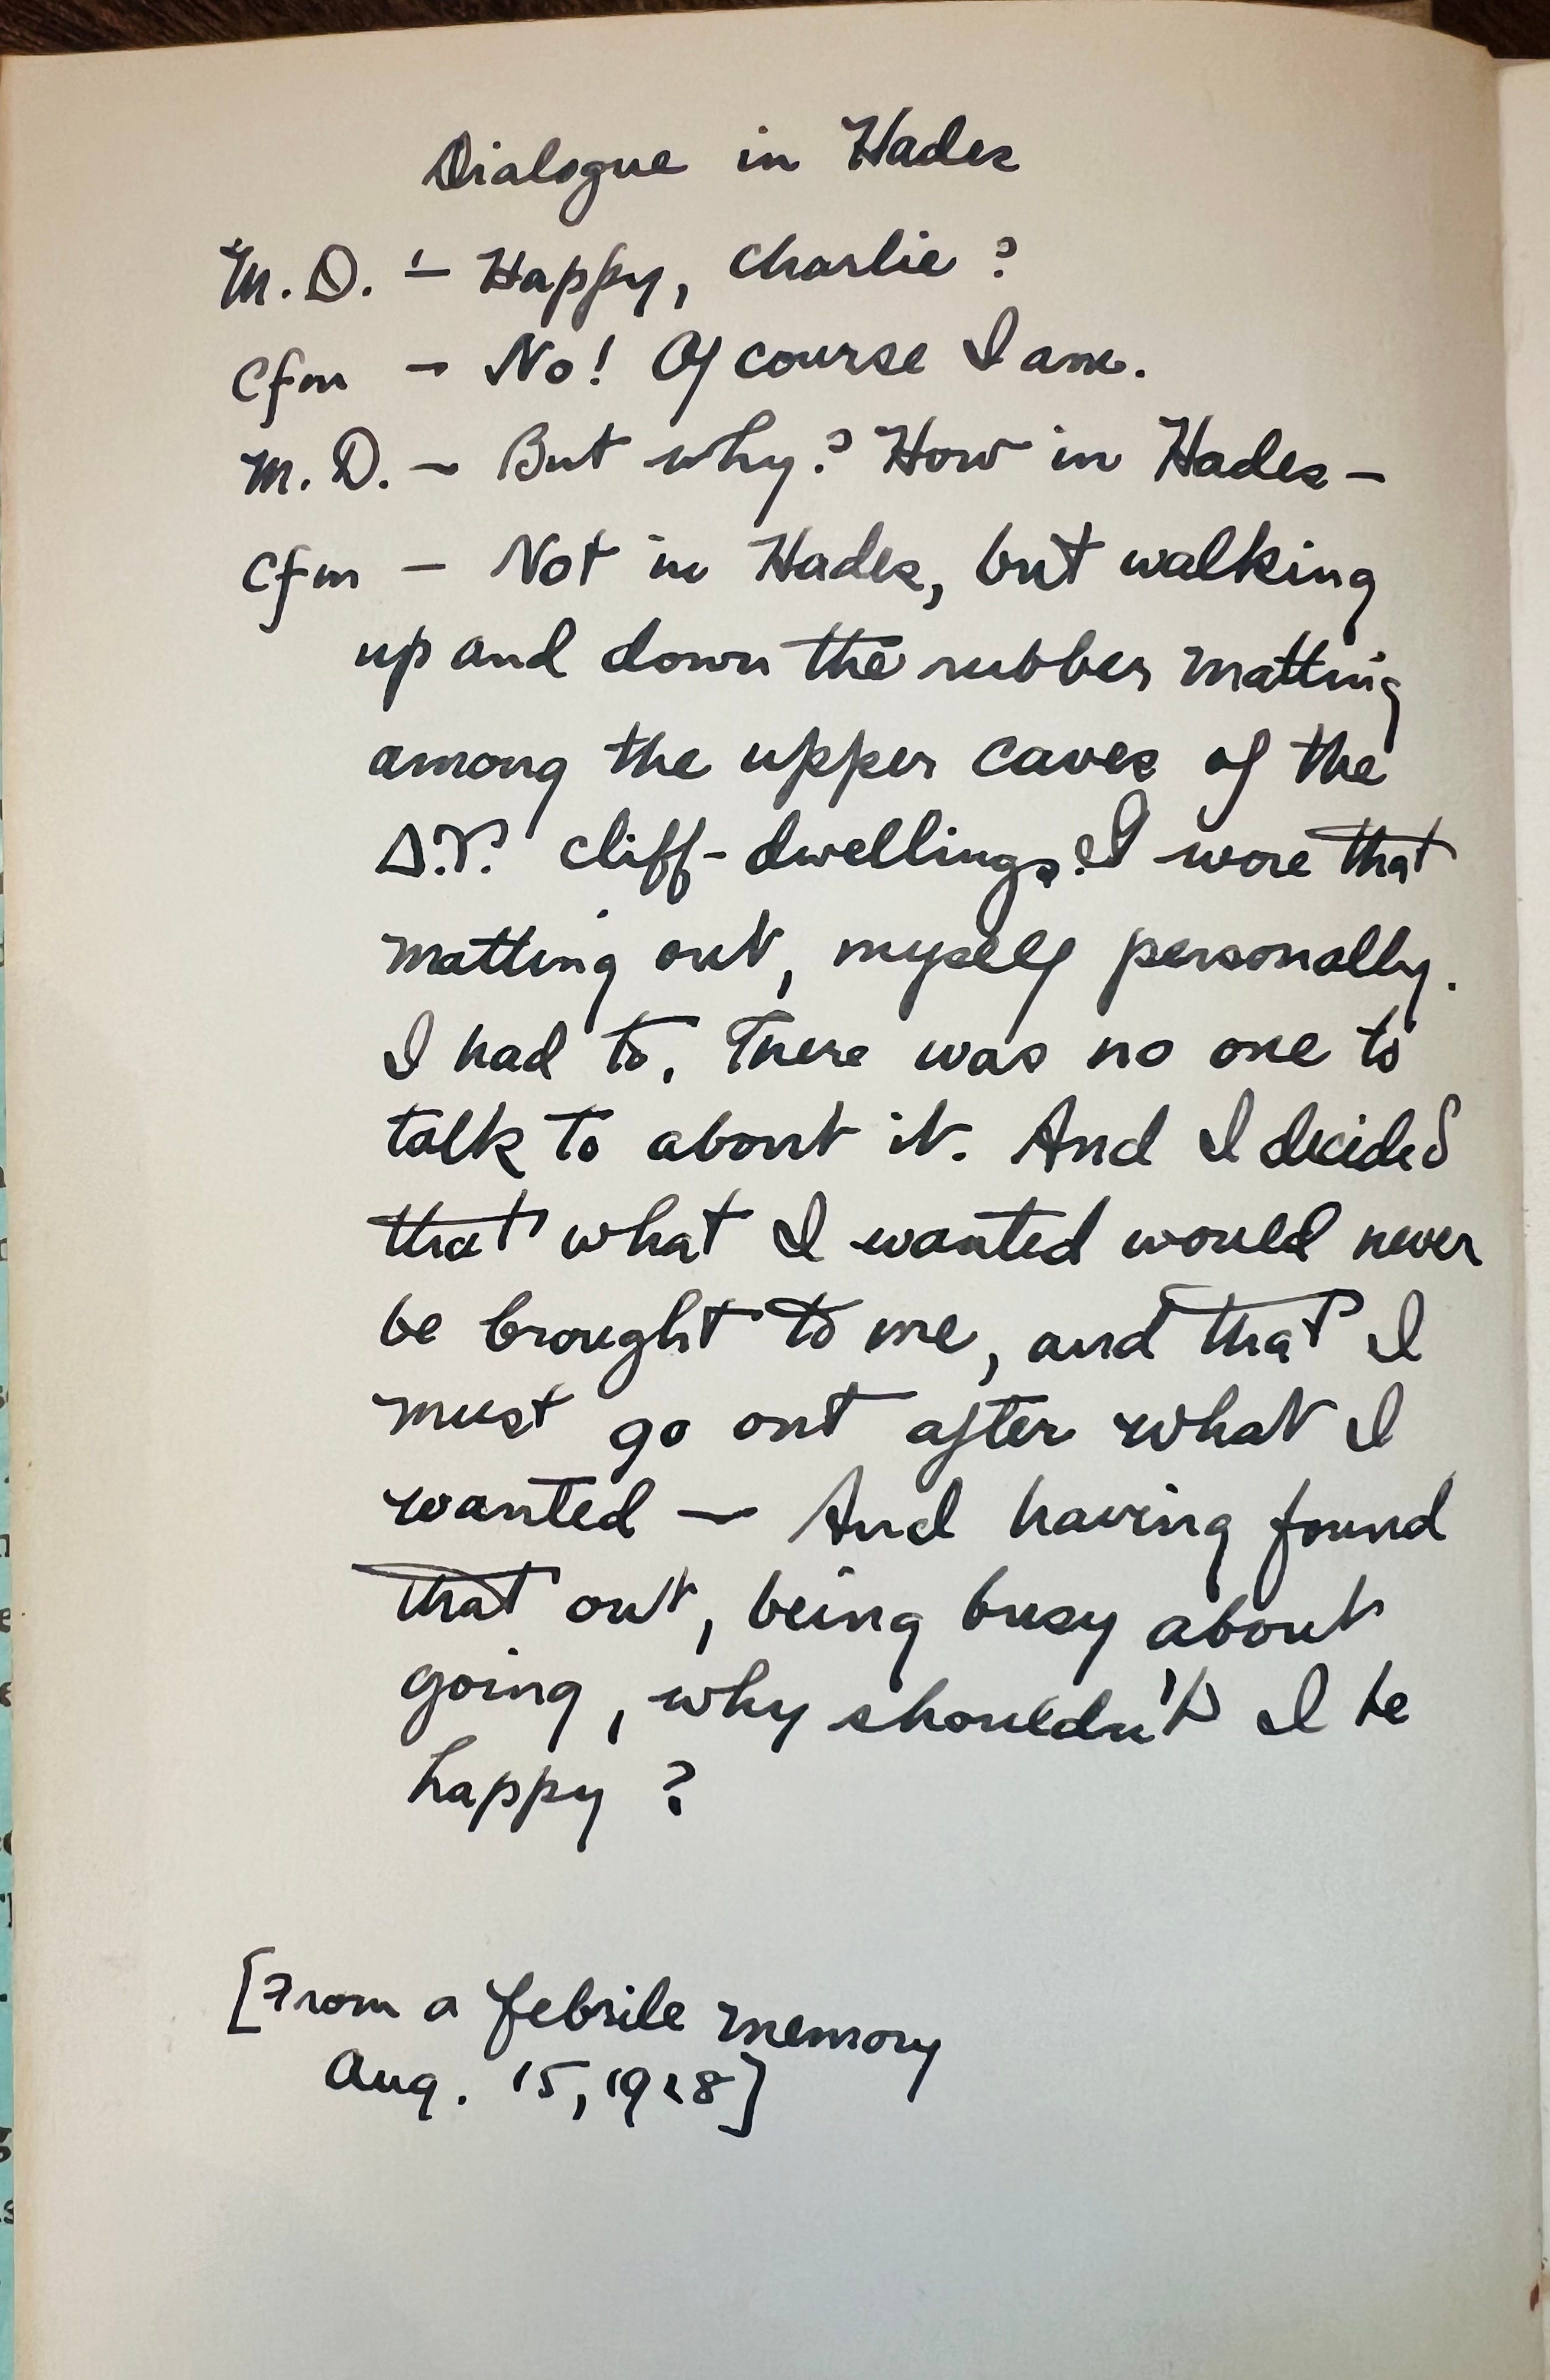 Dialogue in Hades
M.D. — Happy, Charlie?
Cfm — No! Of course I am.
M.D. — But why? How in Hades —
Cfm — Not in Hades, but walking
up and down the rubber matting
among the upper caves of the
Δ.Υ. cliff-dwellings. I wore that
matting out, myself personally.
I had to. There was no one to
talk to about it. And I decided
that what I wanted would never
be brought to me, and that I
must go out after what I
wanted — And having found
that out, being busy about
going, why shouldn't I be
happy?
[From a febrile memory
Aug. 15, 1928]